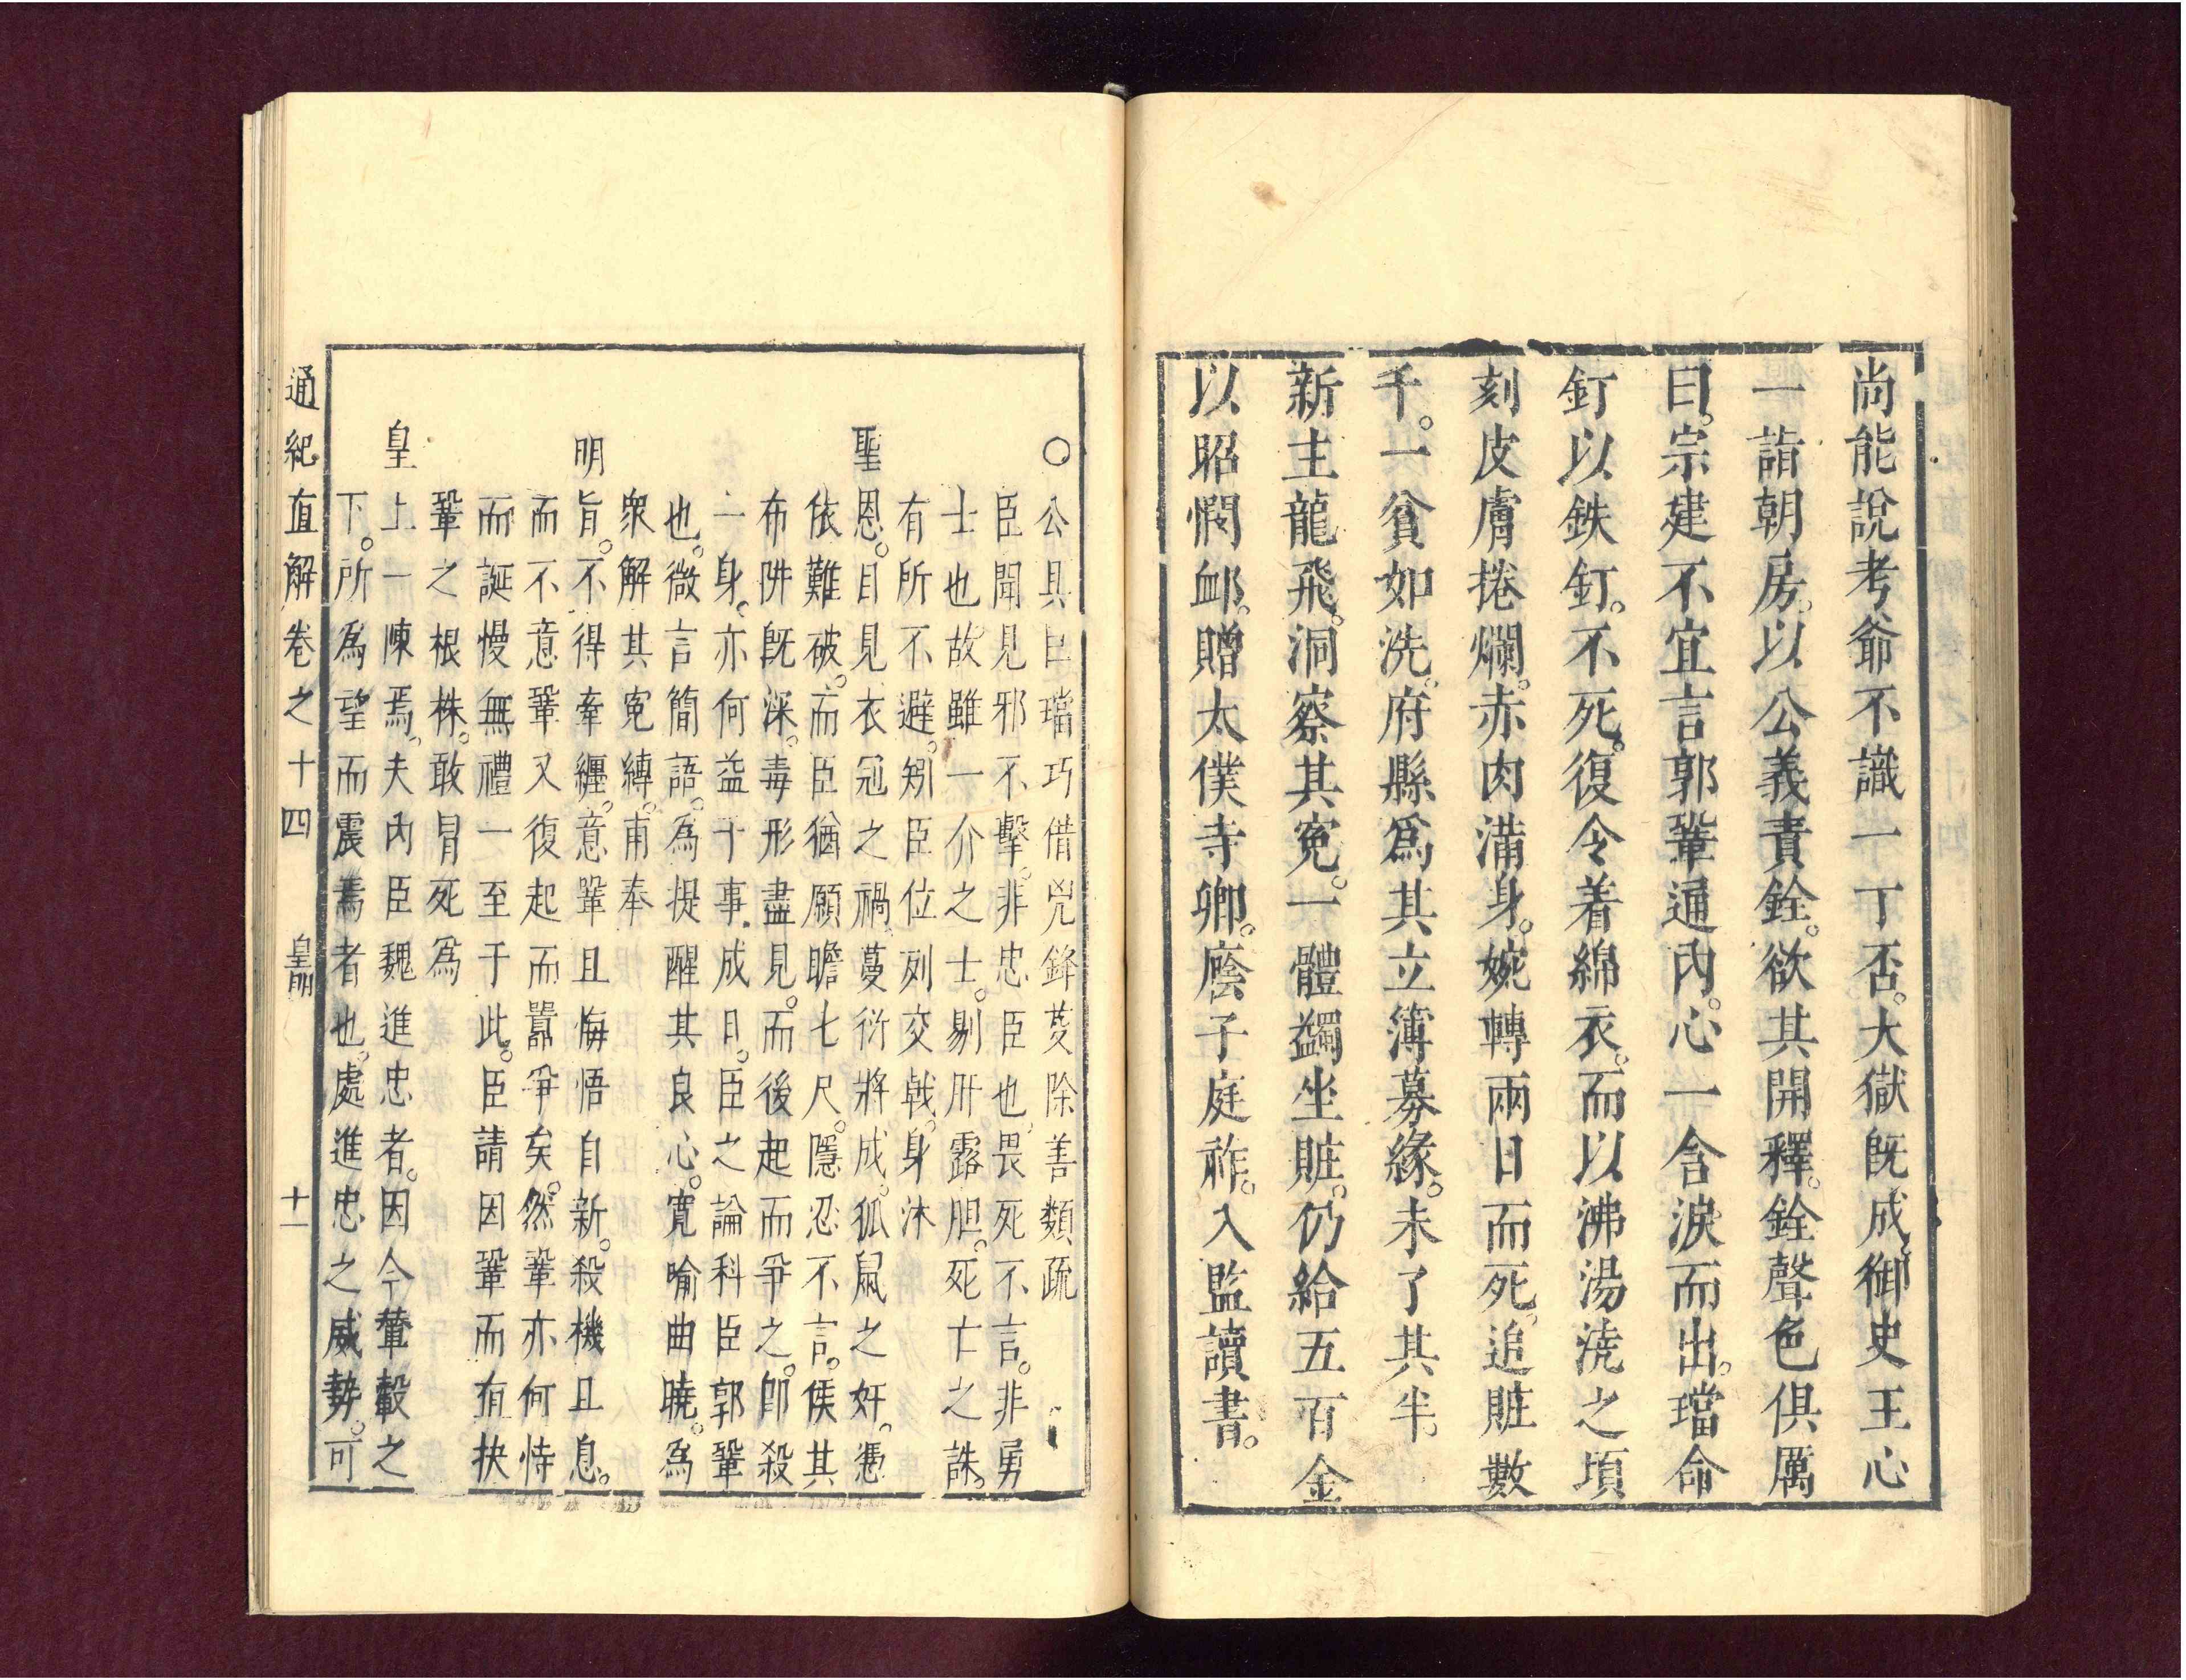 尚能說考爺不識一丁否。大獄既成。御史王心
一詣朝房。以公義責銓。欲其開釋。銓聲色俱厲
曰。宗建不宜言郭鞏通內。心一含淚而出。璫命
釘以鉄釘。不死。復令着綿衣。而以沸湯澆之。頃
刻皮膚捲爛。赤肉滿身。婉轉兩日而死。追賍數
千。一貧如洗。府縣爲其立簿募緣。未了其半。
新主龍飛。洞察其寃。一體蠲坐賍。仍給五百金
以昭憫䘏。贈太僕寺卿。廕子庭祚。入監讀書。
○公具巨璫巧借兇鋒芟除善類疏
臣聞見邪不擊。非忠臣也。畏死不言。非勇
士也。故雖一介之士。剔肝露胆。死亡之誅。
有所不避。矧臣位列交戟。身沐
聖恩。目見衣冠之禍。蔓衍將成。狐鼠之奸。憑
依難破。而臣猶願瞻七尺。隱忍不言。俟其
布阱既深。毒形盡見。而後起而爭之。卽殺
一身。亦何益于事。成日。臣之論科臣郭鞏
也。微言簡語。為提醒其良心。寬喻曲曉。爲
衆解其寃縛。甫奉
明旨。不得牽纏。意鞏且悔悟自新。殺機且息。
而不意鞏又復起而囂爭矣。然鞏亦何恃
而誕慢無禮一至于此。臣請因鞏而有抉
鞏之根株。敢冒死爲
皇上一陳焉。夫內臣魏進忠者。因今輦轂之
下。所爲望而震焉者也。處進忠之威勢。可
通紀直解卷之十四　皇明　十一